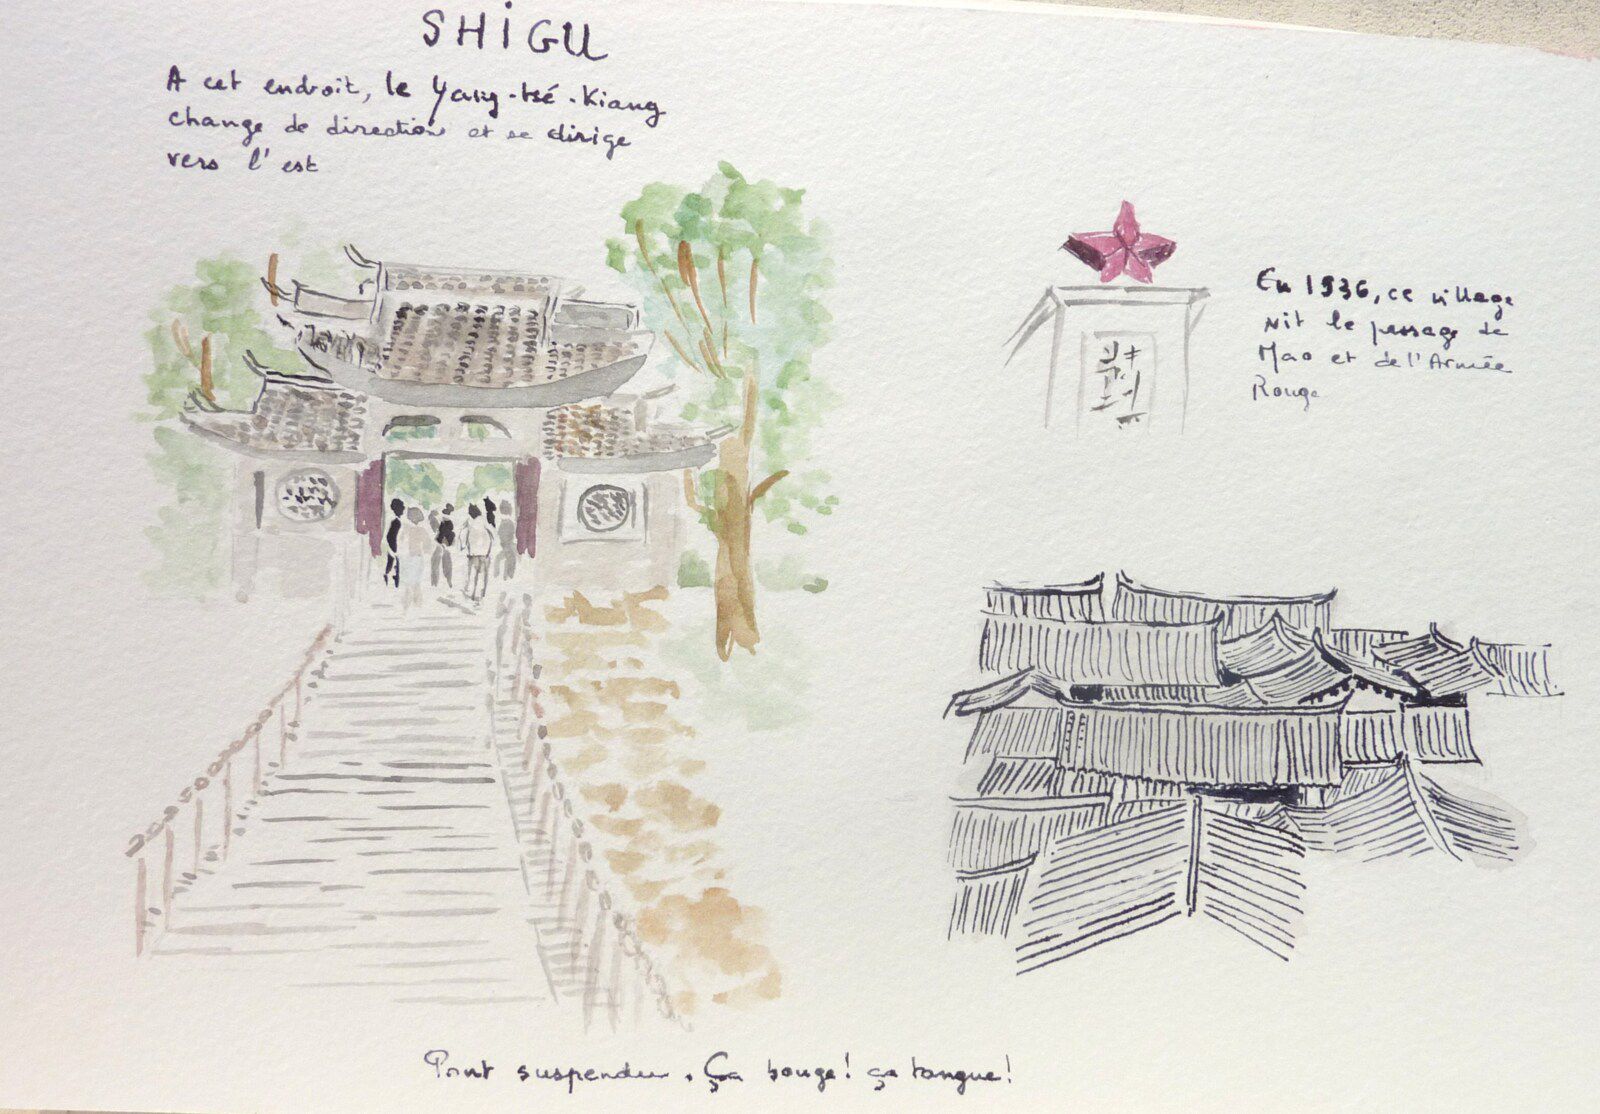 SHIGU
A cet endroit, le Yang-tsé-Kiang
change de direction et se dirige
vers l'est
En 1936, ce village
vit le passage de
Mao et de l'Armée
Rouge
Pont suspendu. Ça bouge! ça tangue!